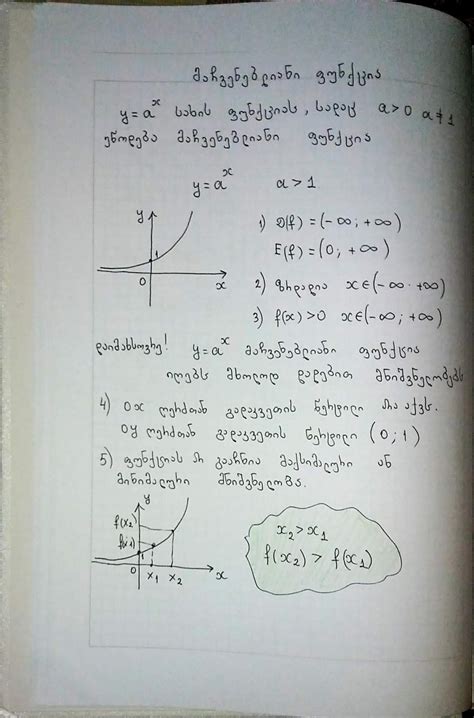 მაჩვენებლიანი ფუნქცია
y = aˣ სახის ფუნქციას, სადაც a > 0 a ≠ 1
ეწოდება მაჩვენებლიანი ფუნქცია
y = aˣ a > 1
y
1
0
x
1) D(f) = (-∞; +∞)
E(f) = (0; +∞)
2) ზრდადია x∈(-∞ · +∞)
3) f(x) > 0 x∈(-∞; +∞)
დაიმახსოვრე! y = aˣ მაჩვენებლიანი ფუნქცია
იღებს მხოლოდ დადებით მნიშვნელობებს
4) 0x ღერძთან გადაკვეთის წერტილი არა აქვს.
0y ღერძთან გადაკვეთის წერტილი (0; 1)
5) ფუნქციას არ გააჩნია მაქსიმალური ან
მინიმალური მნიშვნელობა.
y
f(x₂)
f(x₁)
1
0
x₁ x₂ x
x₂ > x₁
f(x₂) > f(x₁)